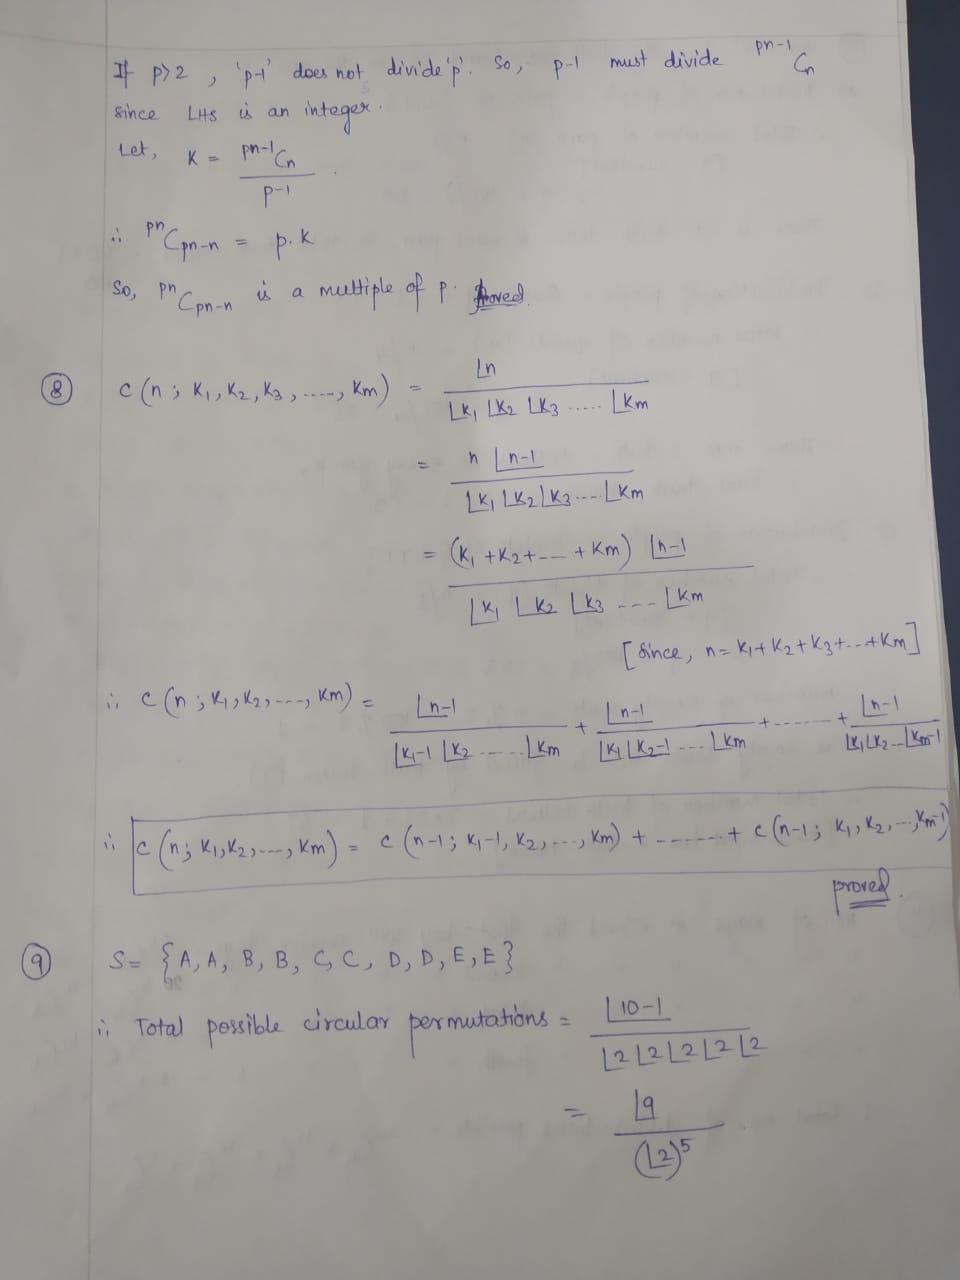 If p>2 , 'p-1' does not divide 'p'. So, p-1 must divide ᵖⁿ⁻¹Cₙ
since LHS is an integer.
Let, K = ᵖⁿ⁻¹Cₙ / p-1 .
∴ ᵖⁿC_{pn-n} = p.K
So, ᵖⁿC_{pn-n} is a multiple of p. proved.
⑧ C(n; K₁, K₂, K₃, ...., Km) = ⌊n / ⌊K₁ ⌊K₂ ⌊K₃ ..... ⌊Km
= n ⌊n-1 / ⌊K₁ ⌊K₂ ⌊K₃ .... ⌊Km
= (K₁ + K₂ + --- + Km) ⌊n-1 / ⌊K₁ ⌊K₂ ⌊K₃ ---- ⌊Km
[Since, n = K₁ + K₂ + K₃ + ... + Km]
∴ C(n; K₁, K₂, ---, Km) = ⌊n-1 / ⌊K₁-1 ⌊K₂ ...... ⌊Km + ⌊n-1 / ⌊K₁ ⌊K₂-1 ... ⌊Km + ....... + ⌊n-1 / ⌊K₁ ⌊K₂ ... ⌊Km-1
∴ C(n; K₁, K₂, ---, Km) = C(n-1; K₁-1, K₂, ..., Km) + ------- + C(n-1; K₁, K₂, ..., Km-1)
proved.
⑨ S = {A, A, B, B, C, C, D, D, E, E}
∴ Total possible circular permutations = ⌊10-1 / ⌊2 ⌊2 ⌊2 ⌊2 ⌊2
= ⌊9 / (⌊2)⁵